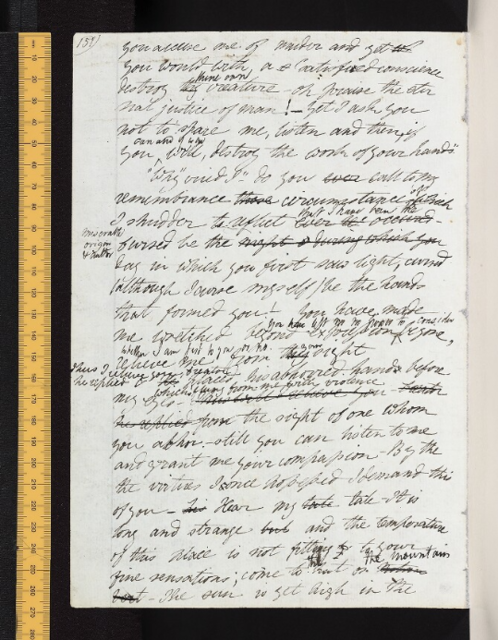 151
you accuse me of murder and yet the
you would with, a satisfied conscience
thine own
destroy my creature - oh praise the eter
nal justice of man! - Yet I ask you
not to spare me, listen and then, if
can and if
you will, destroy the work of your hands"
"Why" cried I " do you call to my
remembrance those circumstances of which
that I have been the
I shudder to reflect
miserable
origin
& author
Cursed be the
day in which you first saw light, cursed
(although I curse myself) be the hands
that formed you! You have made
you have left me no power to consider
me wretched beyond expression. Begone,
whether I am just to you or no
relieve me from the sight
Thus I relieve thee, my creator
he replied & placed his abhorred hands before
which I flung from me with violence
my eyes - thus
he replied from the sight of one whom
you abhor. still you can listen to me
and grant me your compassion - By the
the virtues I once possessed I demand this
of you - Hear my tale. It is
long and strange but and the temperature
of this place is not fitting to your
the mountain
fine sensations; come to the hut on
The sun is yet high in the